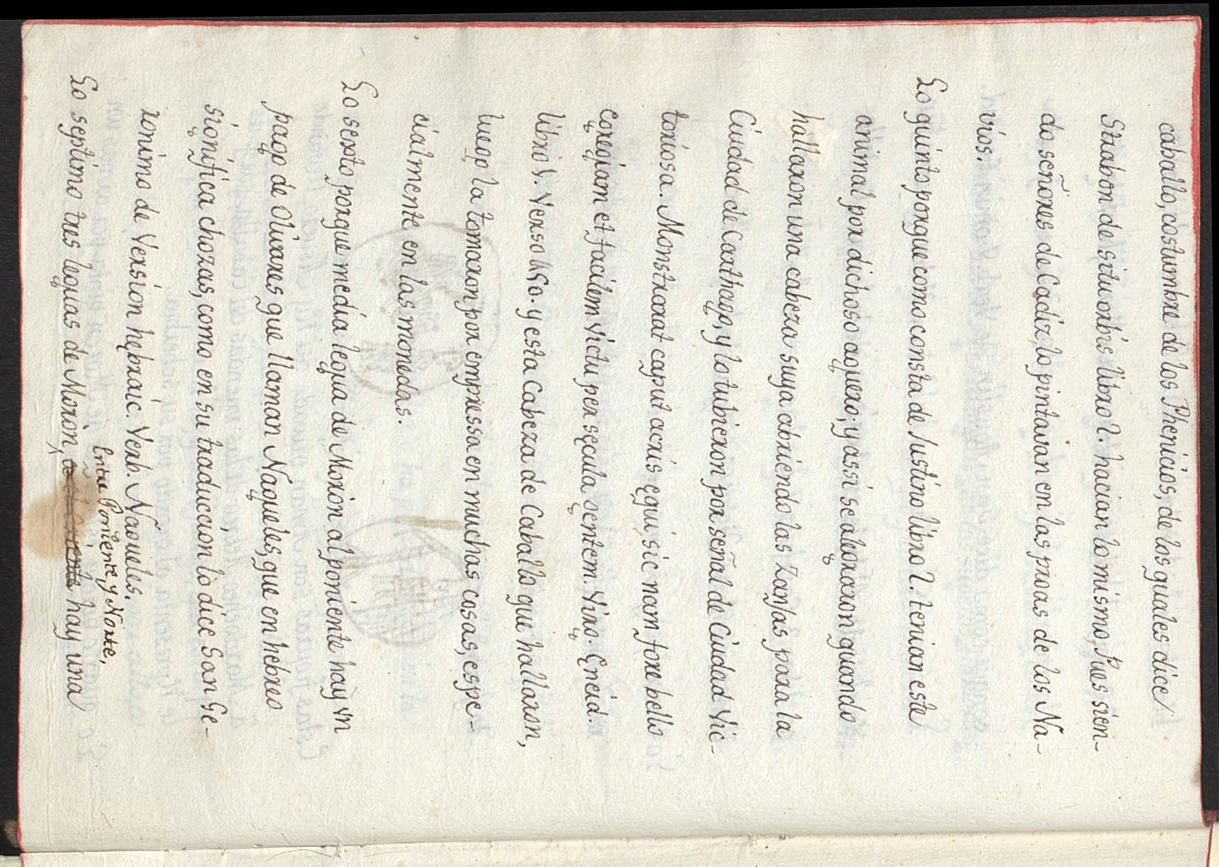 caballo, costumbre de los Phenicios, de los quales dice
Strabon de situ orbis libro 2. hacian lo mismo, pues sien-
do señores de Cadiz lo pintavan en las proas de los Na-
vios.
Lo quinto porque como consta de Justino libro 2. tenian este
animal por dichoso aguero; y assi se alegraron quando
hallaron una cabeza suya abriendo las zanjas para la
Ciudad de Carthago, y lo tubieron por señal de Ciudad Vic-
toriosa. Monstrarat caput acris equi, sic nam fore bello
egregiam et facilem Victu per sęcula gentem. Virg. Eneid.
libro 1. Verso 449. y esta Cabeza de Caballo que hallaron,
luego la tomaron por empressa en muchas cosas, espe-
cialmente en las monedas.
Lo sexto porque media legua de Moron al poniente hay vn
pago de Olivares que llaman Naqueles, que en hebreo
significa chozas, como en su traduccion lo dice San Ge-
ronimo de Version hebraic. Verb. Naoueles.
Entre Poniente y Norte,
Lo septimo tres leguas de Moron, hay una